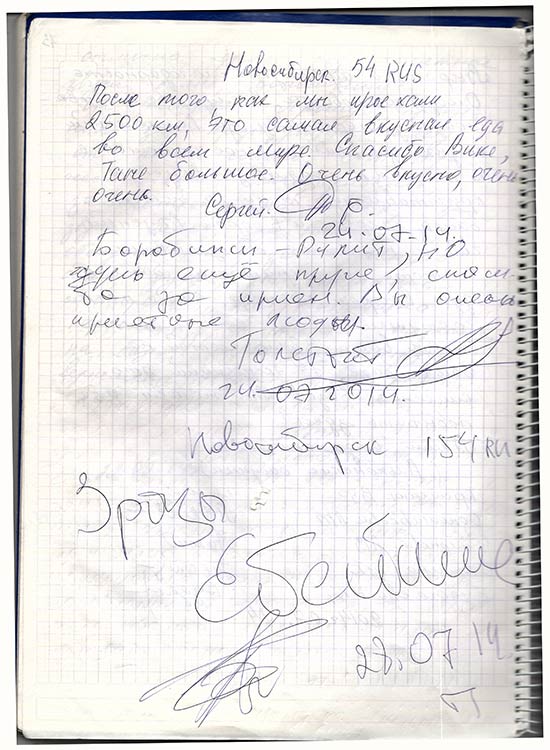 Новосибирск. 54 RUS
После того, как мы проехали
2500 км, это самая вкусная еда
во всем мире. Спасибо Вике,
Тане большое. Очень вкусно, очень
очень.
Сергей.
24.07.14.
Барабинск - Рулит, но
здесь ещё круче, спаси-
бо за прием. Вы очень
приятные люди.
Толстый
24.07.2014.
Новосибирск 154 RU
Зразы
28.07 14